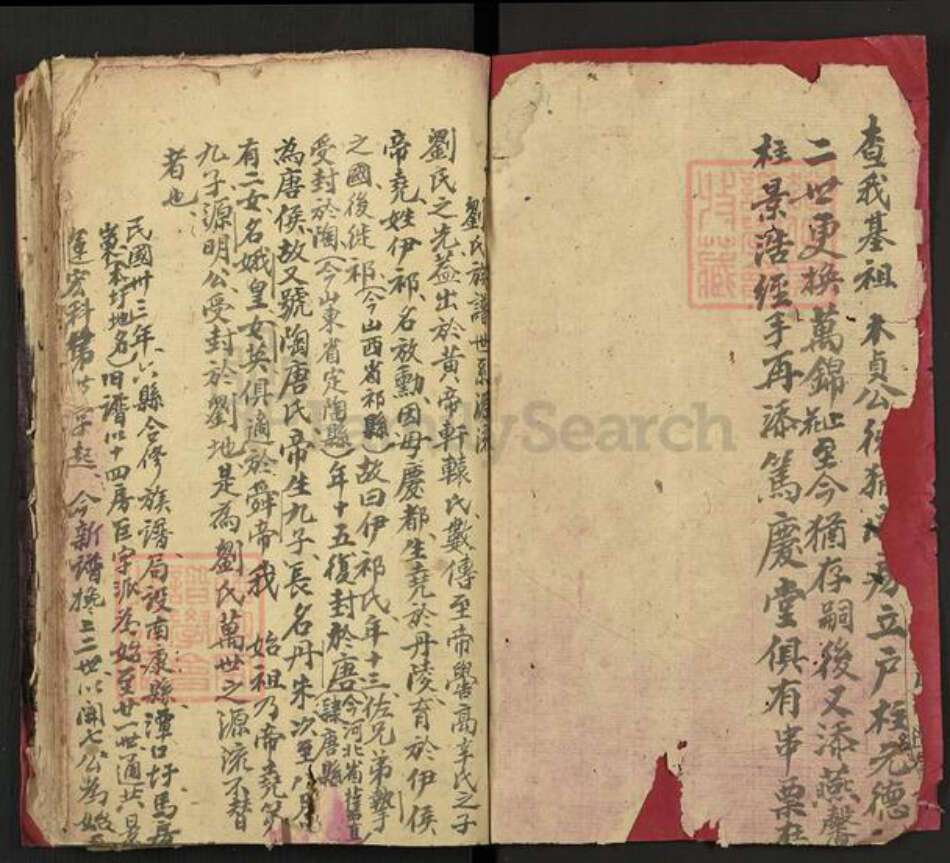 查我基祖 公 立戶柱元德
二世更換萬錦 至今猶存嗣後又添燕馨
柱景浩經手再添篤慶堂俱有串票
劉氏族譜世系源流
劉氏之先蓋出於黃帝軒轅氏數傳至帝嚳高辛氏之子
帝堯姓伊祁名放勳因母慶都生堯於丹陵育於伊侯
之國後徙祁(今山西省祁縣)故曰伊祁氏年十三佐兄帝摯
受封於陶(今山東省定陶縣)年十五復封於唐今河北省 唐縣
為唐侯故又號陶唐氏帝生九子長名丹朱次
有二女名娥皇女英俱適於舜帝我 始祖乃帝堯第
九子源明公受封於劉地是為劉氏萬世之源流不替
者也
民國卅三年六縣合修族譜局設南康縣潭口圩馬
地名)旧譜以十四房巨字派為始至廿一世通共
運宏科第 字起今新譜 三二世以開七公為始
FamilySearch